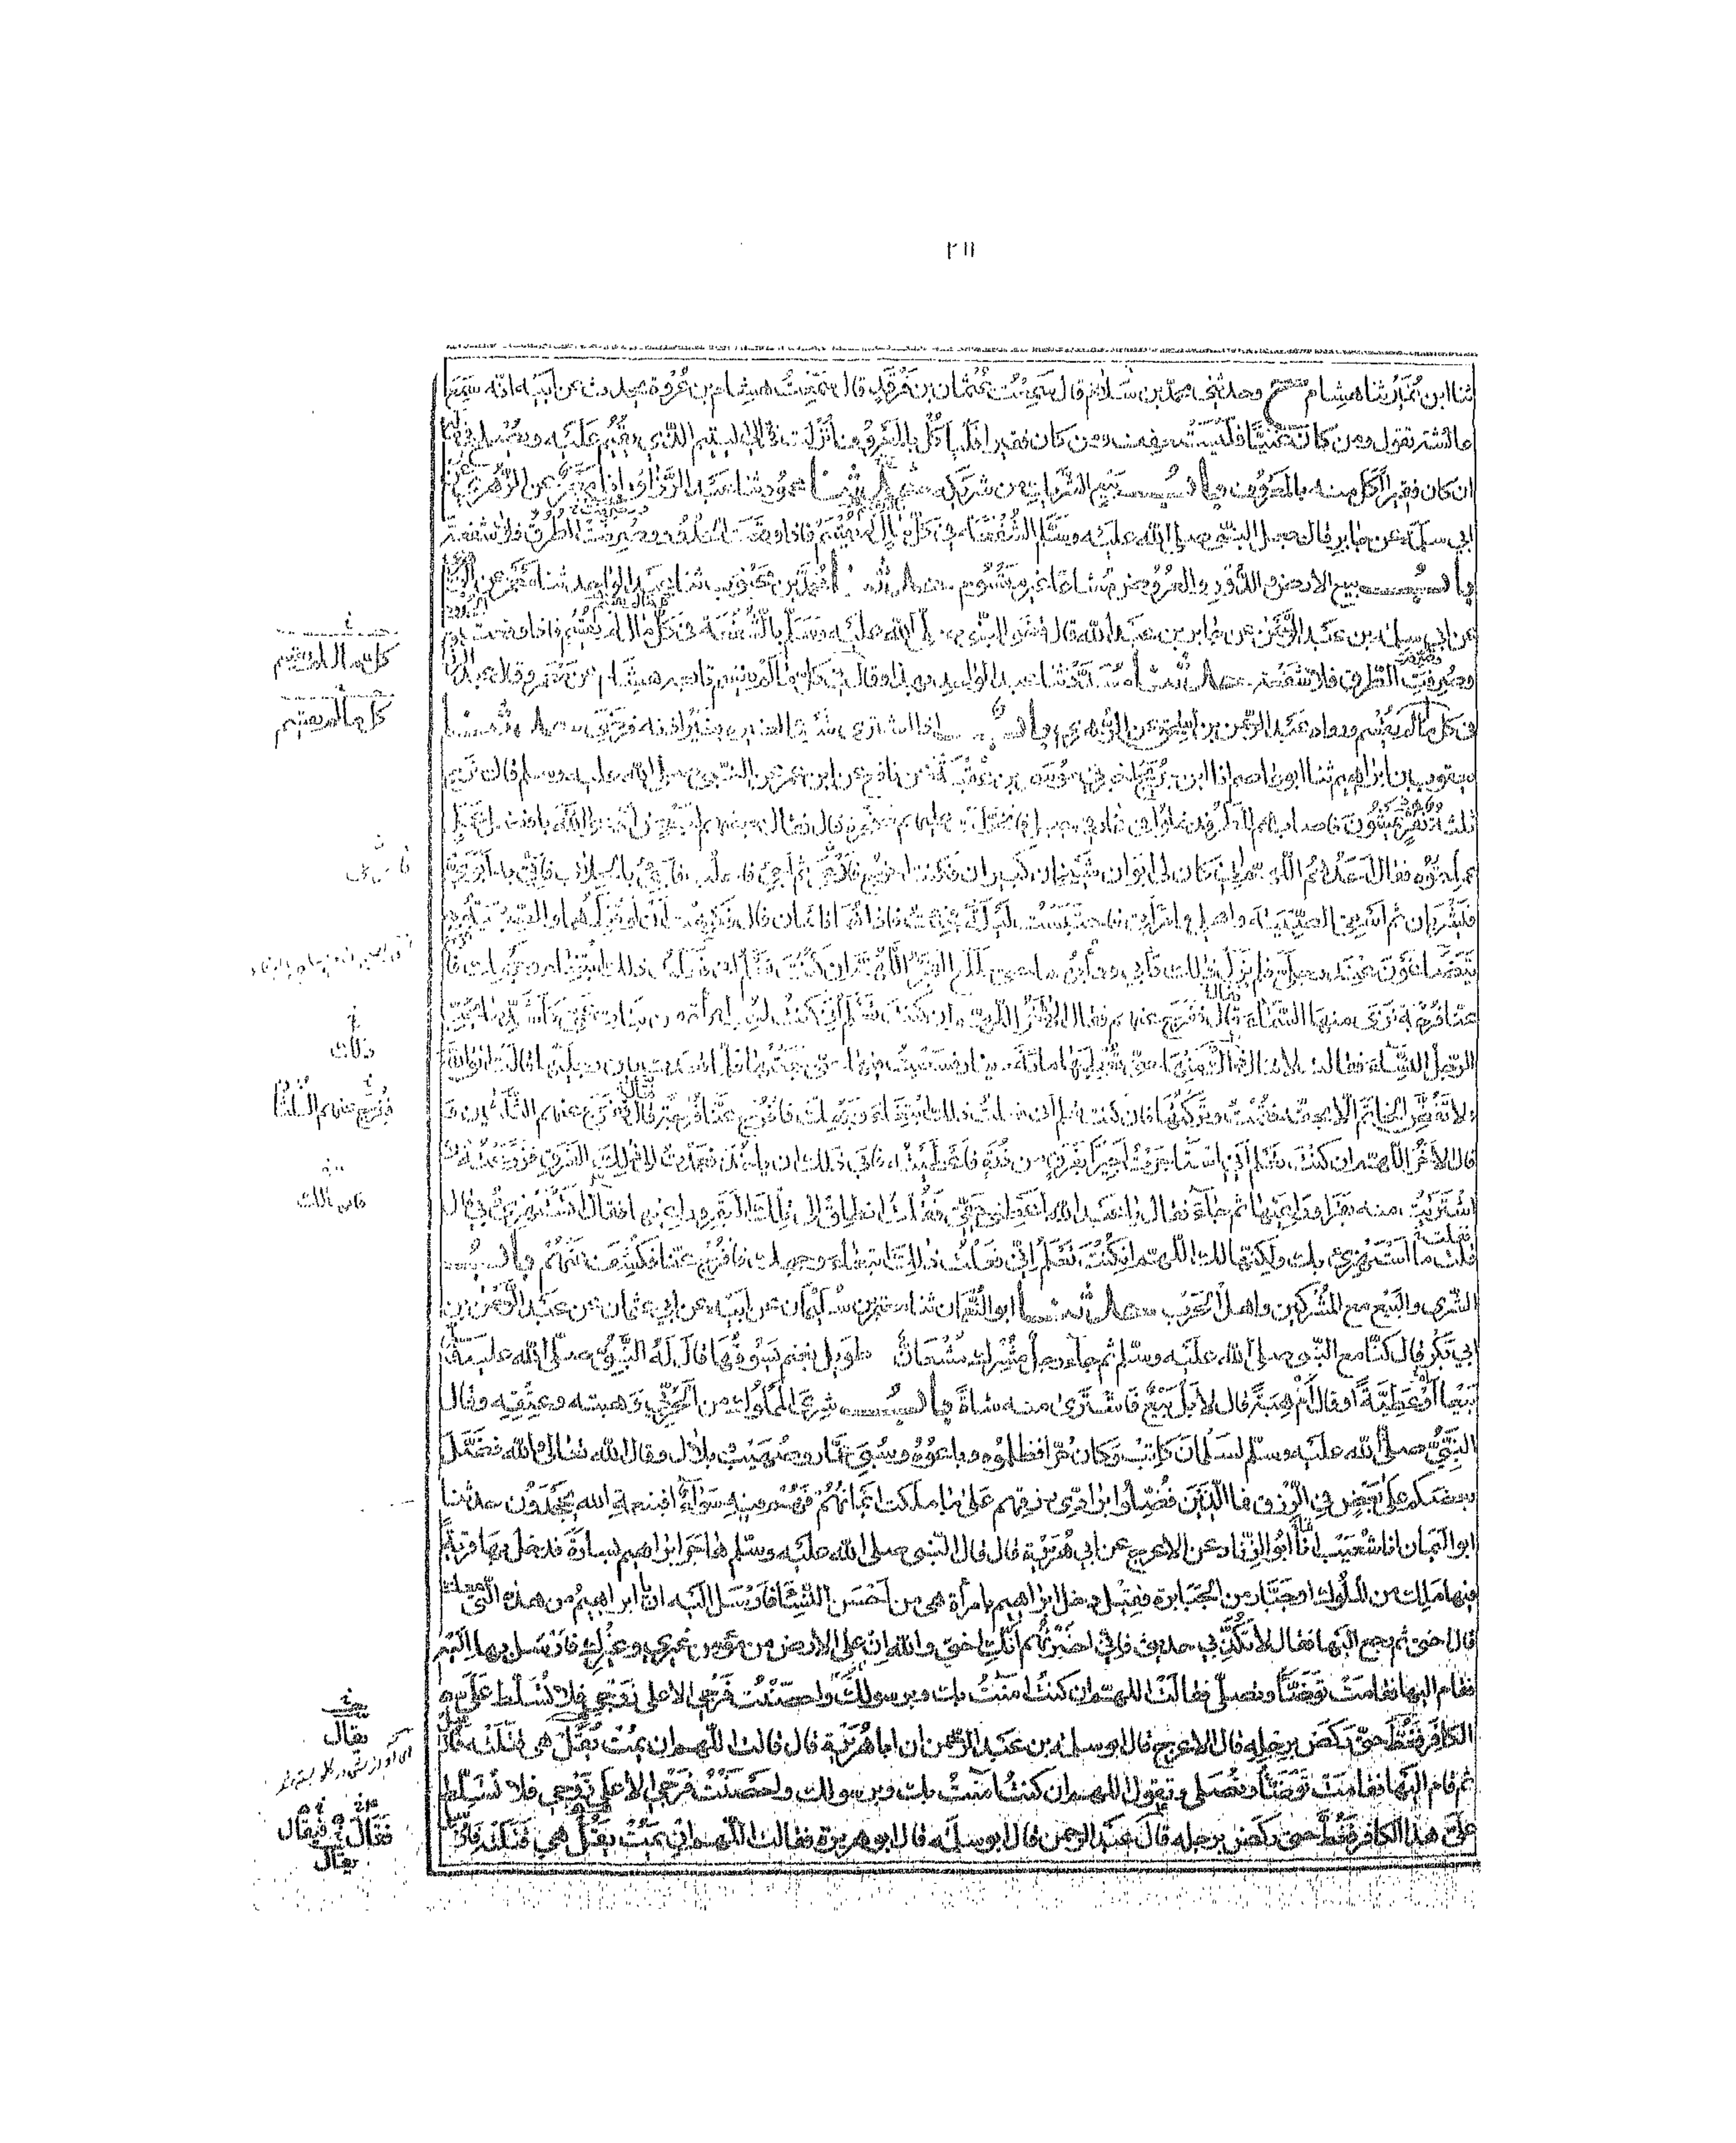 ٢١١
ثنا ابن نمير ثنا هشام ح وحدثني محمد بن سلام قال سمعت عثمان بن فرقد قال سمعت هشام بن عروة يحدث عن ابيه انه سمع
عائشة تقول ومن كان غنيا فليستعفف ومن كان فقيرا فليأكل بالمعروف انزلت في والي اليتيم الذي يقيم عليه ويصلح في
ان كان فقيرا اكل منه بالمعروف باب بيع الشريك من شريكه حدثنا محمود ثنا عبد الرزاق انا معمر عن الزهري عن
ابي سلمة عن جابر قال جعل النبي صلى الله عليه وسلم الشفعة في كل مال لم يقسم فاذا وقعت الحدود وصرفت الطرق فلا شفعة
باب بيع الارض والدور والعروض مشاعا غير مقسوم حدثنا محمد بن محبوب ثنا عبد الواحد ثنا معمر عن
عن ابي سلمة بن عبد الرحمن عن جابر بن عبد الله قال قضى النبي صلى الله عليه وسلم بالشفعة في كل مال لم يقسم فاذا وقعت
وصرفت الطرق فلا شفعة حدثنا مسدد ثنا عبد الواحد بهذا وقال في كل ما لم يقسم تابعه هشام عن معمر وقال عبد الرزاق
في كل مال لم يقسم ورواه عبد الرحمن بن اسحق عن الزهري باب اذا اشترى شيئا لغيره بغير اذنه فرضي حدثنا
يعقوب بن ابراهيم ثنا ابو عاصم انا ابن جريج اخبرني موسى بن عقبة عن نافع عن ابن عمر عن النبي صلى الله عليه وسلم قال خرج
ثلثة نفر يمشون فاصابهم المطر فدخلوا في غار في جبل فانحطت عليهم صخرة قال فقال بعضهم لبعض ادعوا الله بافضل عمل
عملتموه فقال احدهم اللهم اني كان لي ابوان شيخان كبيران فكنت اخرج فارعى ثم اجيء فاحلب فاجيء بالحلاب فآتي به ابوي
فيشربان ثم اسقي الصبية واهلي وامرأتي فاحتبست ليلة فجئت فاذا هما نائمان قال فكرهت ان اوقظهما والصبية
يتضاغون عند رجلي فلم يزل ذلك دأبي ودأبهما حتى طلع الفجر اللهم ان كنت تعلم اني فعلت ذلك ابتغاء وجهك فافرج
عنا فرجة نرى منها السماء قال ففرج عنهم فقال الاخر اللهم ان كنت تعلم اني كنت احب امرأة من بنات عمي كاشد ما يحب
الرجل النساء فقالت لا تنال ذلك منها حتى تعطيها مائة دينار فسعيت فيها حتى جمعتها فلما قعدت بين رجليها قالت اتق الله
ولا تفض الخاتم الا بحقه فقمت وتركتها فان كنت تعلم اني فعلت ذلك ابتغاء وجهك فافرج عنا فرجة قال ففرج عنهم الثلثين و
قال الاخر اللهم ان كنت تعلم اني استأجرت اجيرا بفرق من ذرة فاعطيته فابى ذلك ان ياخذ فعمدت الى ذلك الفرق فزرعته حتى
اشتريت منه بقرا وراعيها ثم جاء فقال يا عبد الله اعطني حقي فقلت انطلق الى تلك البقر وراعيها فقال اتستهزئ بي قال
قلت ما استهزئ بك ولكنها لك اللهم ان كنت تعلم اني فعلت ذلك ابتغاء وجهك فافرج عنا فكشف عنهم باب
الشرى والبيع مع المشركين واهل الحرب حدثنا ابو النعمان ثنا معتمر بن سليمان عن ابيه عن ابي عثمان عن عبد الرحمن بن
ابي بكر قال كنا مع النبي صلى الله عليه وسلم ثم جاء رجل مشرك مشعان طويل بغنم يسوقها فقال له النبي صلى الله عليه وسلم
بيعا او عطية او قال ام هبة قال لا بل بيع فاشترى منه شاة باب شرى المملوك من الحربي وهبته وعتقه وقال
النبي صلى الله عليه وسلم لسلمان كاتب وكان حرا فظلموه وباعوه وسبي عمار وصهيب وبلال وقال الله تعالى والله فضل
بعضكم على بعض في الرزق فما الذين فضلوا برادي رزقهم على ما ملكت ايمانهم فهم فيه سواء افبنعمة الله يجحدون حدثنا
ابو اليمان انا شعيب انا ابو الزناد عن الاعرج عن ابي هريرة قال قال النبي صلى الله عليه وسلم هاجر ابراهيم بسارة فدخل بها قرية
فيها ملك من الملوك او جبار من الجبابرة فقيل دخل ابراهيم بامرأة هي من احسن النساء فارسل اليه ان يا ابراهيم من هذه التي معك
قال اختي ثم رجع اليها فقال لا تكذبي حديثي فاني اخبرتهم انك اختي والله ان على الارض من مؤمن غيري وغيرك فارسل بها اليه
فقام اليها فقامت توضأ وتصلي فقالت اللهم ان كنت امنت بك وبرسولك واحصنت فرجي الا على زوجي فلا تسلط علي
الكافر فغط حتى ركض برجله قال الاعرج قال ابو سلمة بن عبد الرحمن ان ابا هريرة قال قالت اللهم ان يمت يقال هي قتلته فارسل
ثم قام اليها فقامت توضأ وتصلي وتقول اللهم ان كنت امنت بك وبرسولك واحصنت فرجي الا على زوجي فلا تسلط
علي هذا الكافر فغط حتى ركض برجله قال عبد الرحمن قال ابو سلمة قال ابو هريرة فقالت اللهم ان يمت يقل هي قتلته فارسل
كل مال لم يقسم
كل ما لم يقسم
ذلك
ففرج عنهم الثلثين
يقال
فقال فيقال
يقال